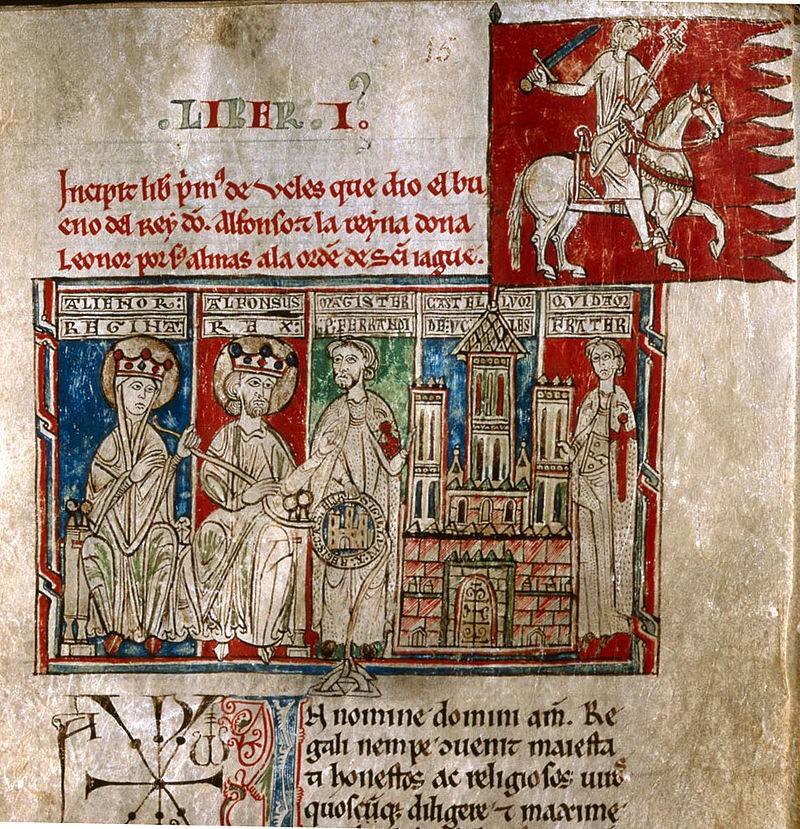 15
.LIBER.I.
Incipit lib p̄m⁹ de Vcles que dio el bu
eno del Rey dō. Alfonso ⁊ la reyna dona
Leonor por s⁹ almas a la ordē de Sc̄i iague.
ALIENOR:
REGINA:
ALFONSUS
REX:
MAGISTER
P. FERRANDI
CASTELLVM
DE VCLES
QVIDAM
FRATER
A ω
IN nomine domini am̄. Re
gali nempe ɔuenit maiesta
ti honestos ac religiosos uiros
quoscūq; diligere ⁊ maxime